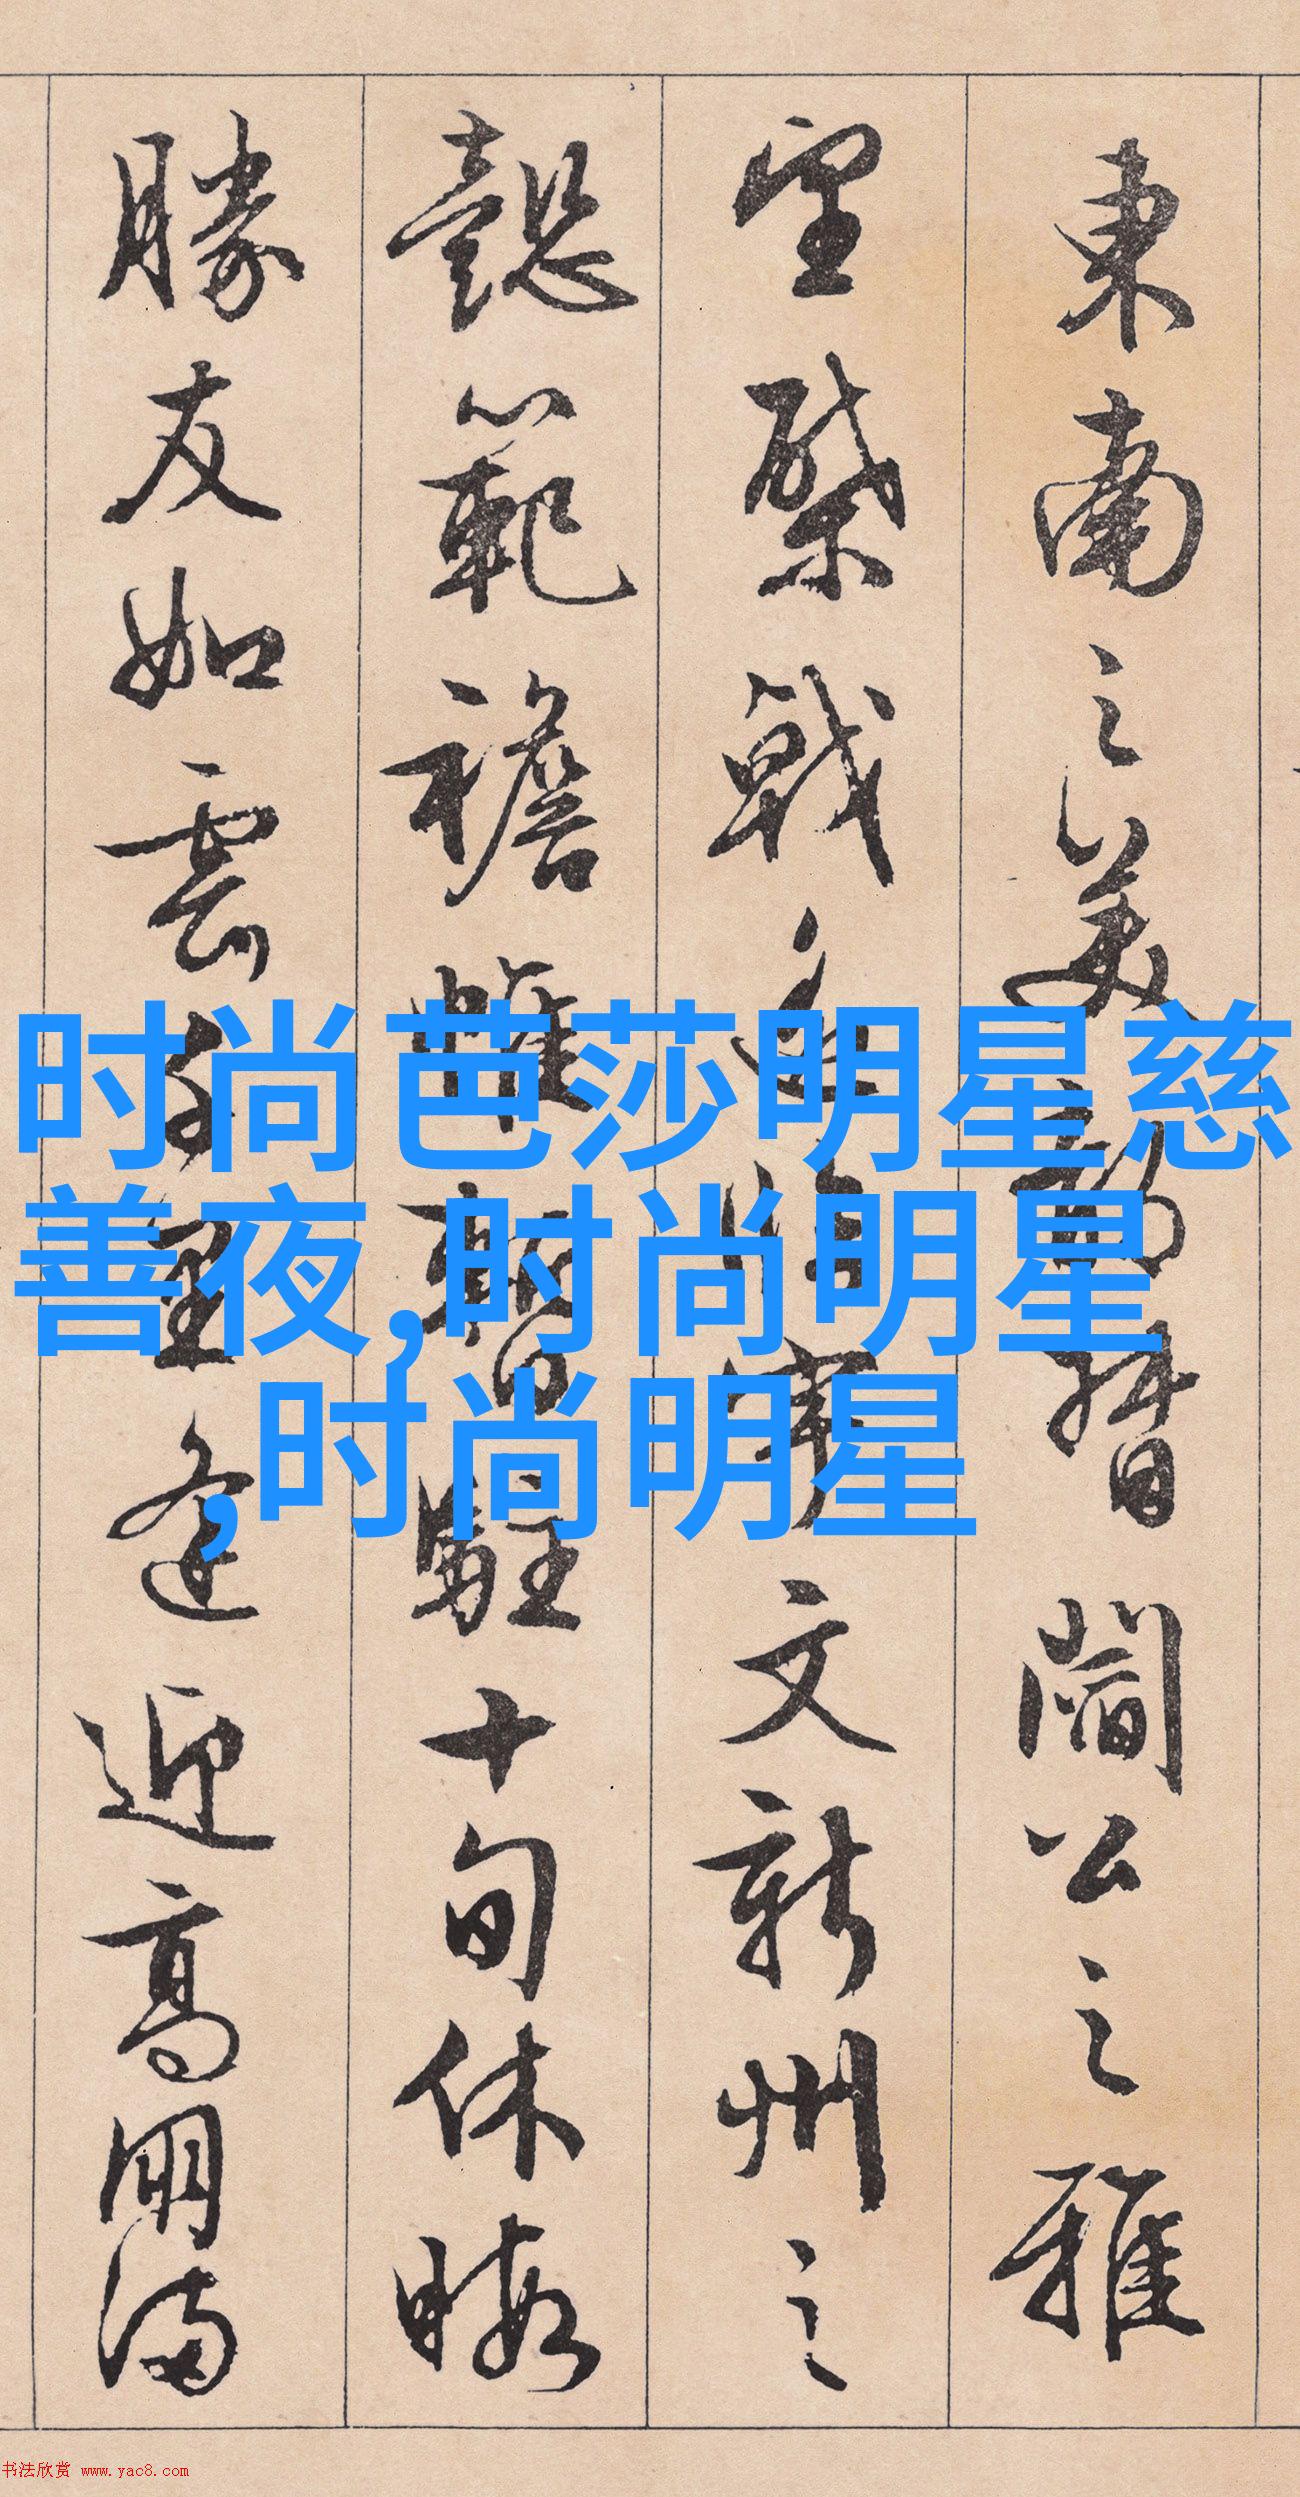 東南之美都督閻公之雅
望棨戟遥臨宇文新州之
懿範襜帷暫駐十旬休暇
勝友如雲千里逢迎高朋滿
时尚芭莎明星慈
善夜,时尚明星
,时尚明星
书法欣赏 www.yac8.com